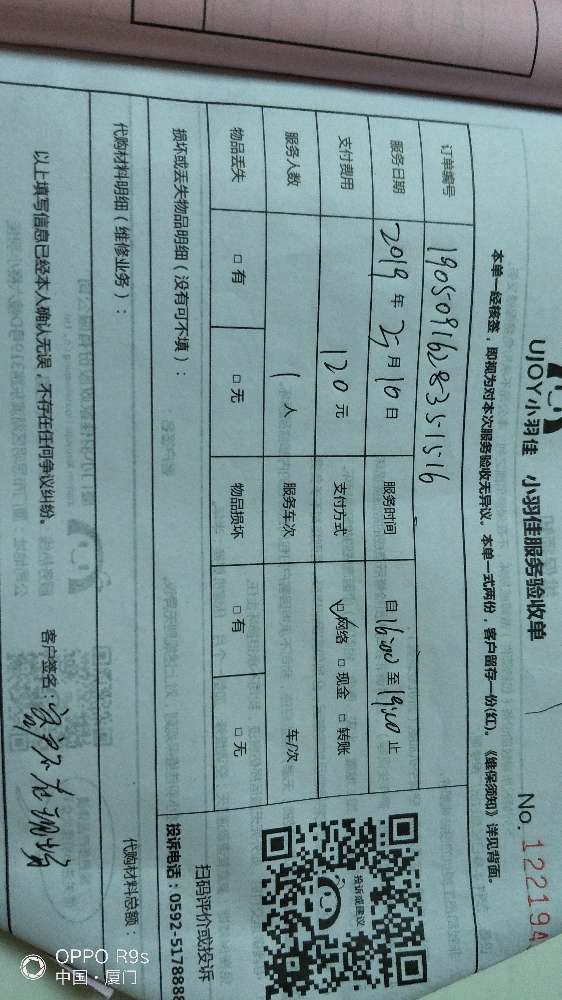 UJOY小羽佳 小羽佳服务验收单
No. 122194
本单一经核签，即视为对本次服务验收无异议。本单一式两份，客户留存一份(红)。《维保须知》详见背面。
订单编号 1905091628351516
服务日期 2019年5月10日 服务时间 自16:00至19:00止
支付费用 120元 支付方式 ☑网络 □现金 □转账
服务人数 1人 服务车次 车/次
物品丢失 □有 □无 物品损坏 □有 □无
投诉或建议
扫码评价或投诉
投诉电话：0592-5178888
损坏或丢失物品明细（没有可不填）：
代购材料明细（维修业务）： 代购材料总额：
以上填写信息已经本人确认无误，不存在任何争议纠纷。 客户签名：客户不在现场
OPPO R9s
中国·厦门